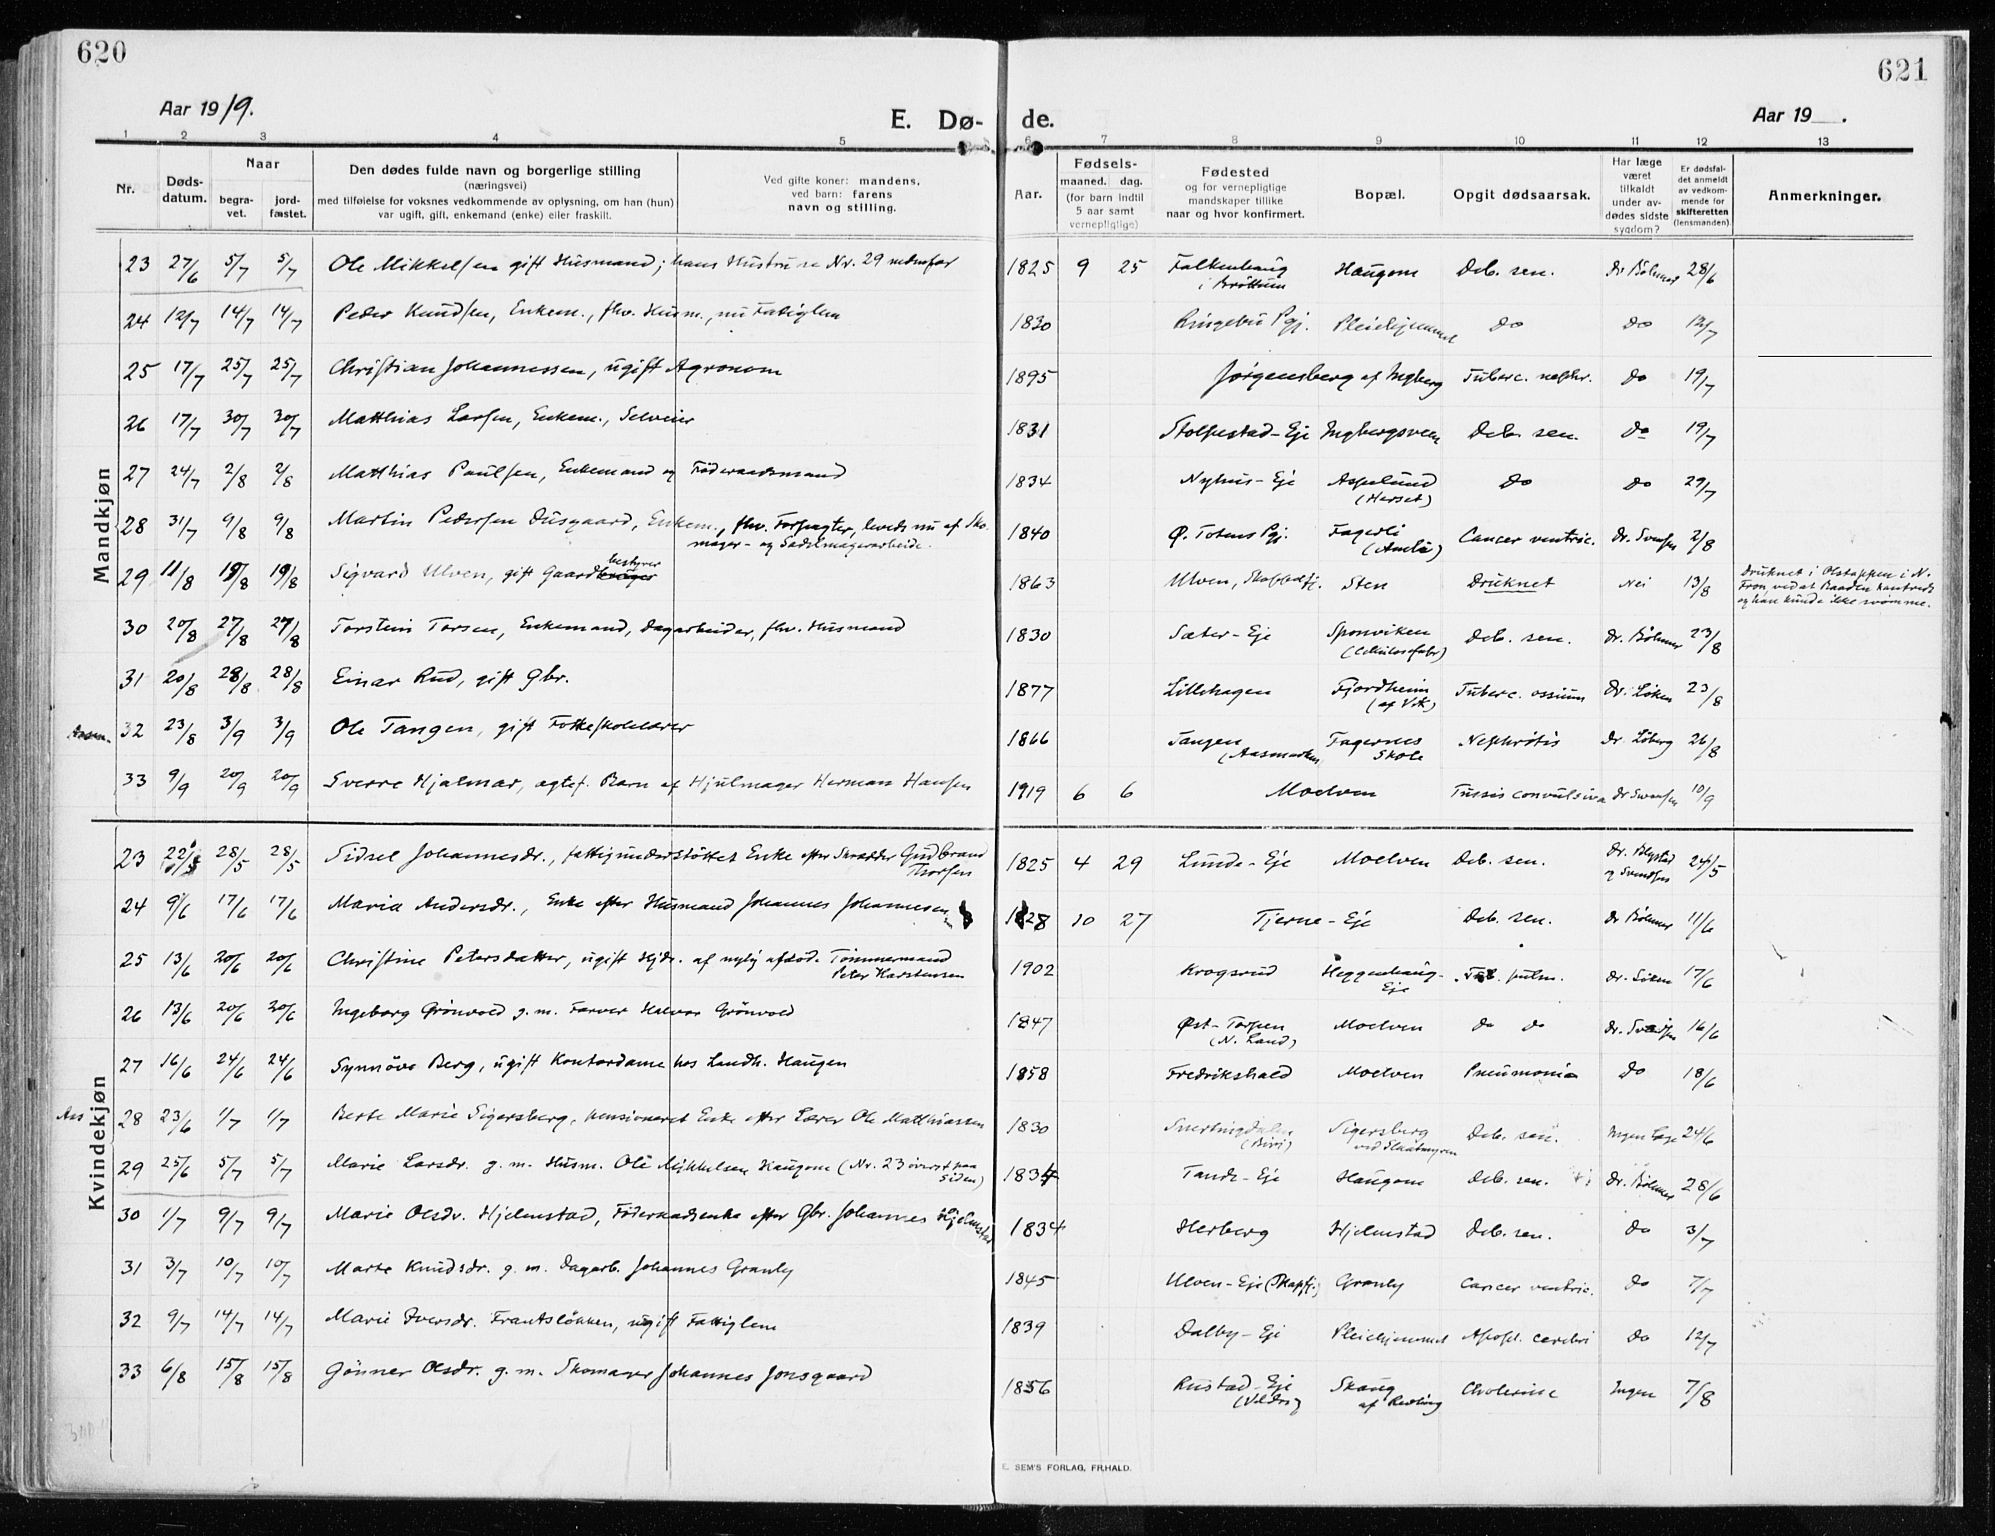 620
621
Aar 1919.
E. Dø- de.
Aar 19 .
1 2 3 4 5 6 7 8 9 10 11 12 13
Nr.
Døds-
datum.
Naar
begra-
vet.
jord-
fæstet.
Den dødes fulde navn og borgerlige stilling
(næringsvei)
med tilføielse for voksnes vedkommende av oplysning, om han (hun)
var ugift, gift, enkemand (enke) eller fraskilt.
Ved gifte koner: mandens,
ved barn: farens
navn og stilling.
Aar.
Fødsels-
maaned. dag.
(for barn indtil
5 aar samt
vernepligtige)
Fødested
og for vernepligtige
mandskaper tillike
naar og hvor konfirmert.
Bopæl.
Opgit dødsaarsak.
Har læge
været
tilkaldt
under av-
dødes sidste
sygdom?
Er dødsfal-
det anmeldt
av vedkom-
mende for
skifteretten
(lensmanden).
Anmerkninger.
Mandkjøn
23 27/6 5/7 5/7 Ole Mikkelsen gift Husmand; hans Hustru se Nr. 29 nedenfor 1825 9 25 Falkenhaug i Brøttum Haugom Deb. sen. Dr Bøhmer 28/6
24 12/7 14/7 14/7 Peder Knudsen, Enkem., fhv. Husm., nu Fattiglem 1830 Ringebu Pgj. Pleiehjemmet do do 12/7
25 17/7 25/7 25/7 Christian Johannessen, ugift Agronom 1895 Jørgensberg af Ingberg Tuberc. nephr. do 19/7
26 17/7 30/7 30/7 Matthias Larsen, Enkem., Selveier 1831 Stolpestad-Eje Ingbergsveen Deb. sen. do 19/7
27 24/7 2/8 2/8 Matthias Paulsen, Enkemand og Føderaadsmand 1834 Nyhus-Eje Aspelund (Herset) do do 29/7
28 31/7 9/8 9/8 Martin Pedersen Dusgaard, Enkem., fhv. Forpagter, leveds nu af Sko-
mager- og Sadelmagerarbeide. 1840 Ø. Totens Pgj. Fagerli (Amlie) Cancer ventric. Dr. Svensen 2/8
29 11/8 19/8 19/8 Sigvard Ulven, gift Gaardbruger bestyrer 1863 Ulven, Sten Druknet Nei 13/8 Druknet i Olstappen i N.
Fron, ved at Baaden kantrede
og han kunde ikke svømme.
30 20/8 27/8 27/8 Torstein Torsen, Enkemand, Dagarbeider, fhv. Husmand 1830 Sæter-Eje Sponviken (Cellulosefabr) Deb. sen. Dr. Bøhmer 23/8
31 20/8 28/8 28/8 Einar Rud, gift Gbr. 1877 Lillehagen Fjordheim (af Vik) Tuberc. ossium Dr. Løken 23/8
32 23/8 3/9 3/9 Ole Tangen, gift Folkeskolelærer 1866 Tangen (Aasmarken) Fagernes Skole Nephritis Dr. Løberg 26/8
33 9/9 20/9 20/9 Sverre Hjalmar, ægtef. Barn af Hjulmager Herman Hansen 1919 6 6 Moelven Tussis convulsiva Dr Svensen 10/9
Kvindekjøn
23 22/5 28/5 28/5 Sidsel Johannesdr., fattigunderstøttet Enke efter Skrædder Gudbrand
Thorsen 1825 4 29 Lunde-Eje Moelven Deb. sen. 24/5
24 9/6 17/6 17/6 Maria Andersdr., Enke efter Husmand Johannes Johannesen 1828 10 27 Tjerne-Eje Deb. sen. Dr Bøhmer 11/6
25 13/6 20/6 20/6 Christine Petersdatter, ugift Hjdr. af nylig afdød. Tømmermand
Peter Karstensen 1902 Krogsrud Heggenhaug-Eje Tub. pulm. Dr. Løken 17/6
26 13/6 20/6 20/6 Ingeborg Grönvold g. m. Farver Halvor Grönvold 1847 Øst-Torpen (N. Land) Moelven do do Dr. Svendsen 16/6
27 16/6 24/6 24/6 Synnöve Berg, ugift Kontordame hos Landh. Haugen 1858 Fredrikshald Moelven Pneumonie do 18/6
28 23/6 1/7 1/7 Berte Marie Sigersberg, pensioneret Enke efter Lærer Ole Matthiassen 1830 Snertingdalen (Biri) Sigersberg Deb. sen. Ingen Læge 24/6
29 25/6 5/7 5/7 Marie Larsdr. g. m. Husm. Ole Mikkelsen Haugom (Nr. 23 øverst paa
Siden) 1834 Tande-Eje Haugom Deb. sen. Dr. Bøhmer 28/6
30 1/7 9/7 9/7 Marie Olsdr. Hjelmstad, Föderaadsenke efter Gbr. Johannes Hjelmstad 1834 Herberg Hjelmstad Deb. sen. do 3/7
31 3/7 10/7 10/7 Marte Knudsdr. g. m. Dagarb. Johannes Granly 1845 Ulven-Eje (Skapfj.) Granly Cancer ventric. do 7/7
32 9/7 14/7 14/7 Marie Iversdr. Frantsløkken, ugift Fattiglem 1839 Dalby-Eje Pleiehjemmet Apopl. cerebri do 12/7
33 6/8 15/8 15/8 Gönner Olsdr. g. m. Skomager Johannes Jonsgaard 1856 Rustad-Eje (Veldre) Skaug Cholerine Ingen 7/8
E. SEM'S FORLAG, FR.HALD.